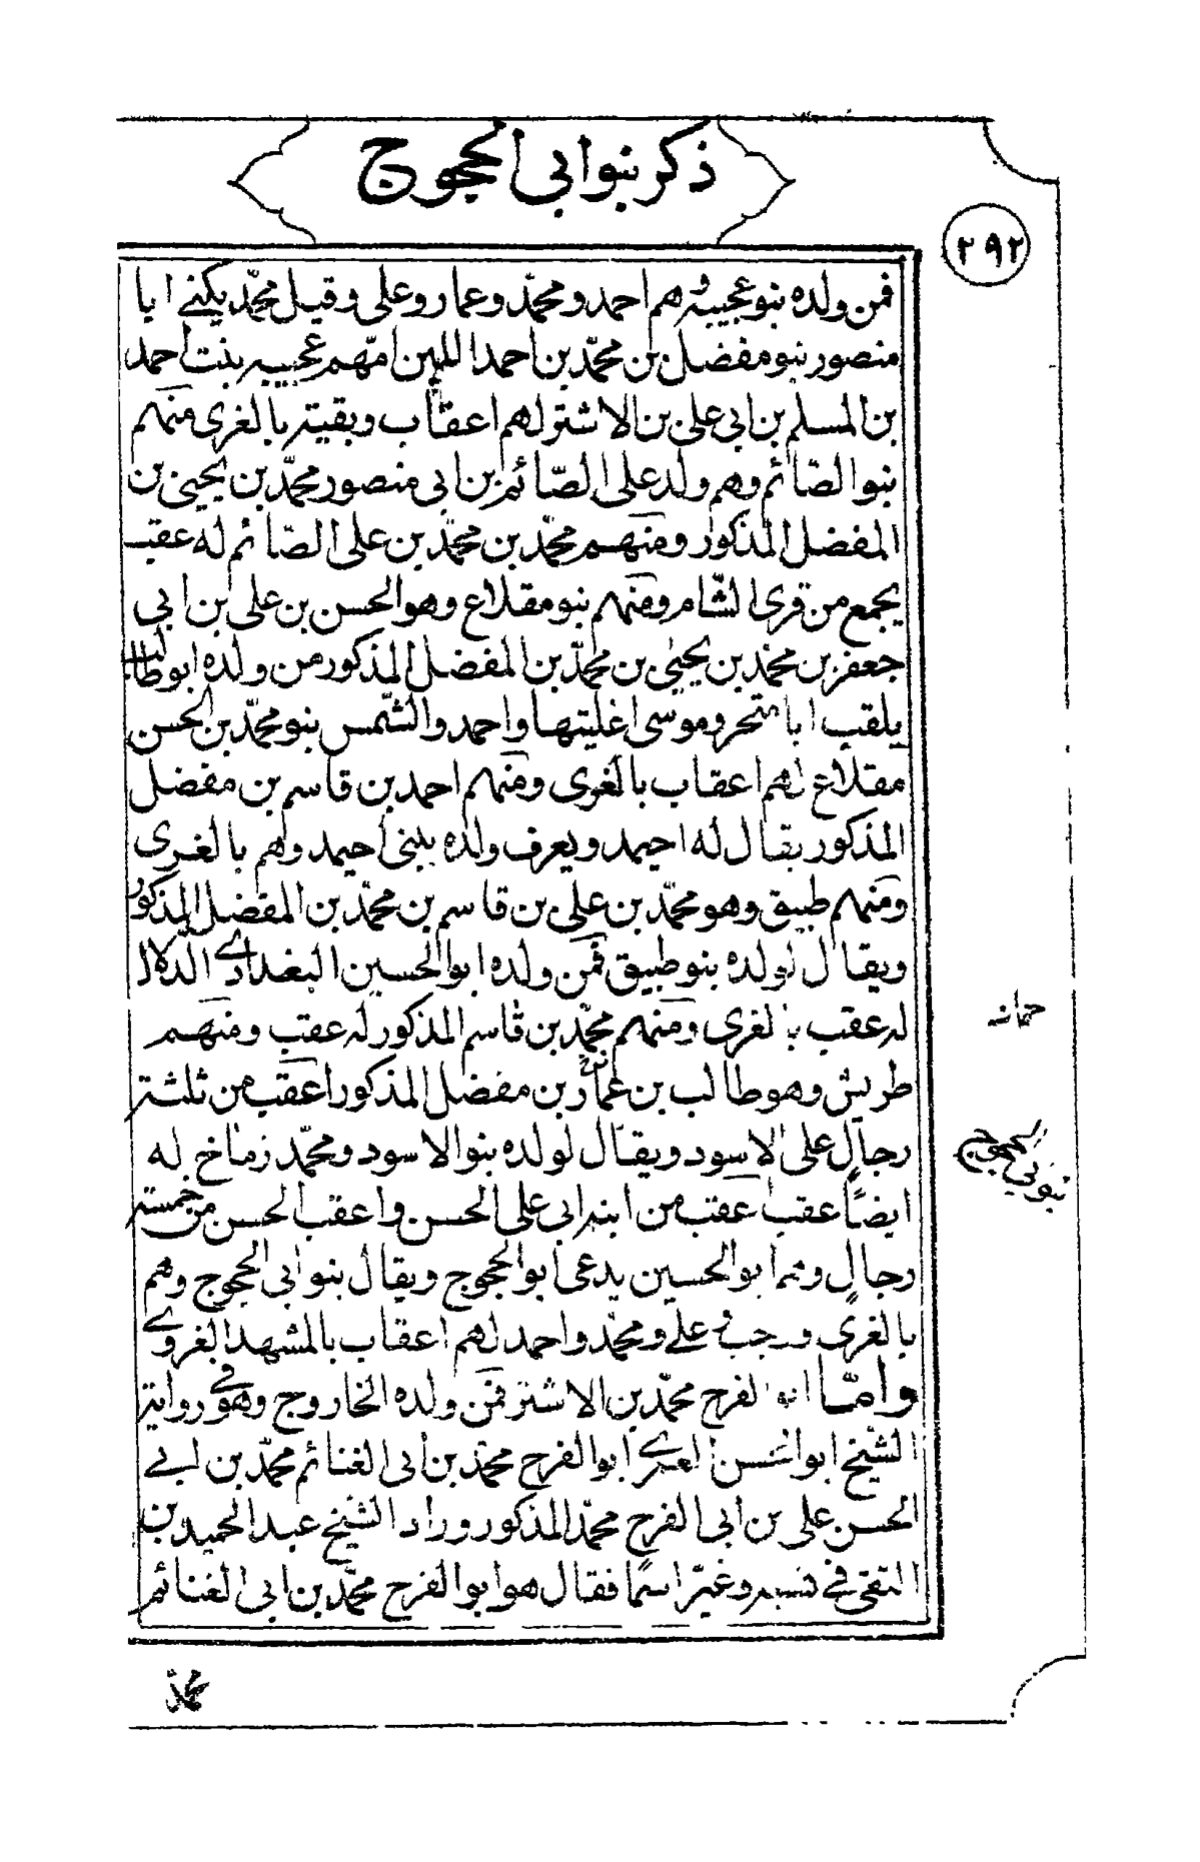 ذكر بنو ابي الحجوج
٢٩٢
فمن ولده بنو عجيبه وهم احمد ومحمّد وعمار وعلى وقيل محمّد يكنى ابا
منصور بنو مفضل بن محمّد بن احمد اللبن امّهم عجيبه بنت احمد
بن المسلم بن ابى على بن الاشتر لهم اعقاب وبقيته بالغرى منهم
بنو الصّائم وهم ولد على الصّائم بن ابى منصور محمّد بن يحيى بن
المفضل المذكور ومنهم محمّد بن محمّد بن على الصّائم له عقب
يجمع من قرى الشام ومنهم بنو مقلاع وهو الحسن بن على بن ابى
جعفر بن محمّد بن يحيى بن محمّد بن المفضل المذكور من ولده ابو طالب
يلقب ابا وموسى واحمد والشّمس بنو محمّد بن الحسن
مقلاع لهم اعقاب بالغرى ومنهم احمد بن قاسم بن مفضل
المذكور يقال له احيمد ويعرف ولده ببنى احيمد وهم بالغرى
ومنهم طبيق وهو محمّد بن على بن قاسم بن محمّد بن المفضل المذكور
ويقال لولده بنو طبيق فمن ولده ابو الحسين البغدادى الدلال
له عقب بالغرى ومنهم محمّد بن قاسم المذكور له عقب ومنهم
طريش وهو طالب بن عمار بن مفضل المذكور اعقب من ثلثة
رجال على الاسود ويقال لولده بنو الاسود ومحمّد زماخ له
ايضاً عقب اعقب من ابنه ابى على الحسن واعقب الحسن من خمسته
رجال ومنهم ابو الحسين يدعى ابو الحجوج ويقال بنو ابى الحجوج وهم
بالغرى على ومحمّد واحمد لهم اعقاب بالمشهد الغروى
وامّا ابو الفرج محمّد بن الاشتر فمن ولده الخاروج وهو فى رواية
الشيخ ابو الحسن العمرى ابو الفرج محمّد بن ابى الغنائم محمّد بن ابى
الحسن على بن ابى الفرج محمّد المذكور وزاد الشيخ عبد الحميد بن
التقى فى نسبه وغيّر اسمًا فقال هو ابو الفرج محمّد بن ابى الغنائم
حمانه
بنو ابي الحجوج
محمّد